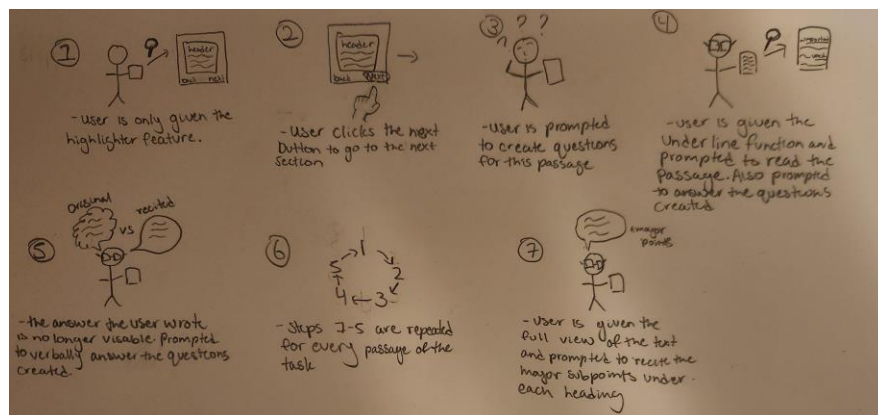 1
header
back next
- User is only given the
highlighter feature.
2
header
back Next
- User clicks the next
button to go to the next
section
3
? ? ?
- User is prompted
to create questions
for this passage
4
- User is given the
Underline function and
prompted to read the
passage. Also prompted
to answer the questions
created
5
original
vs
recited
- the answer the user wrote
is no longer visable. Prompted
to verbally answer the questions
created.
6
1
5 2
4 3
- Steps 1-5 are repeated
for every passage of the
task
7
major
points
- User is given the
full view of the text
and prompted to recite the
major subpoints under
each heading